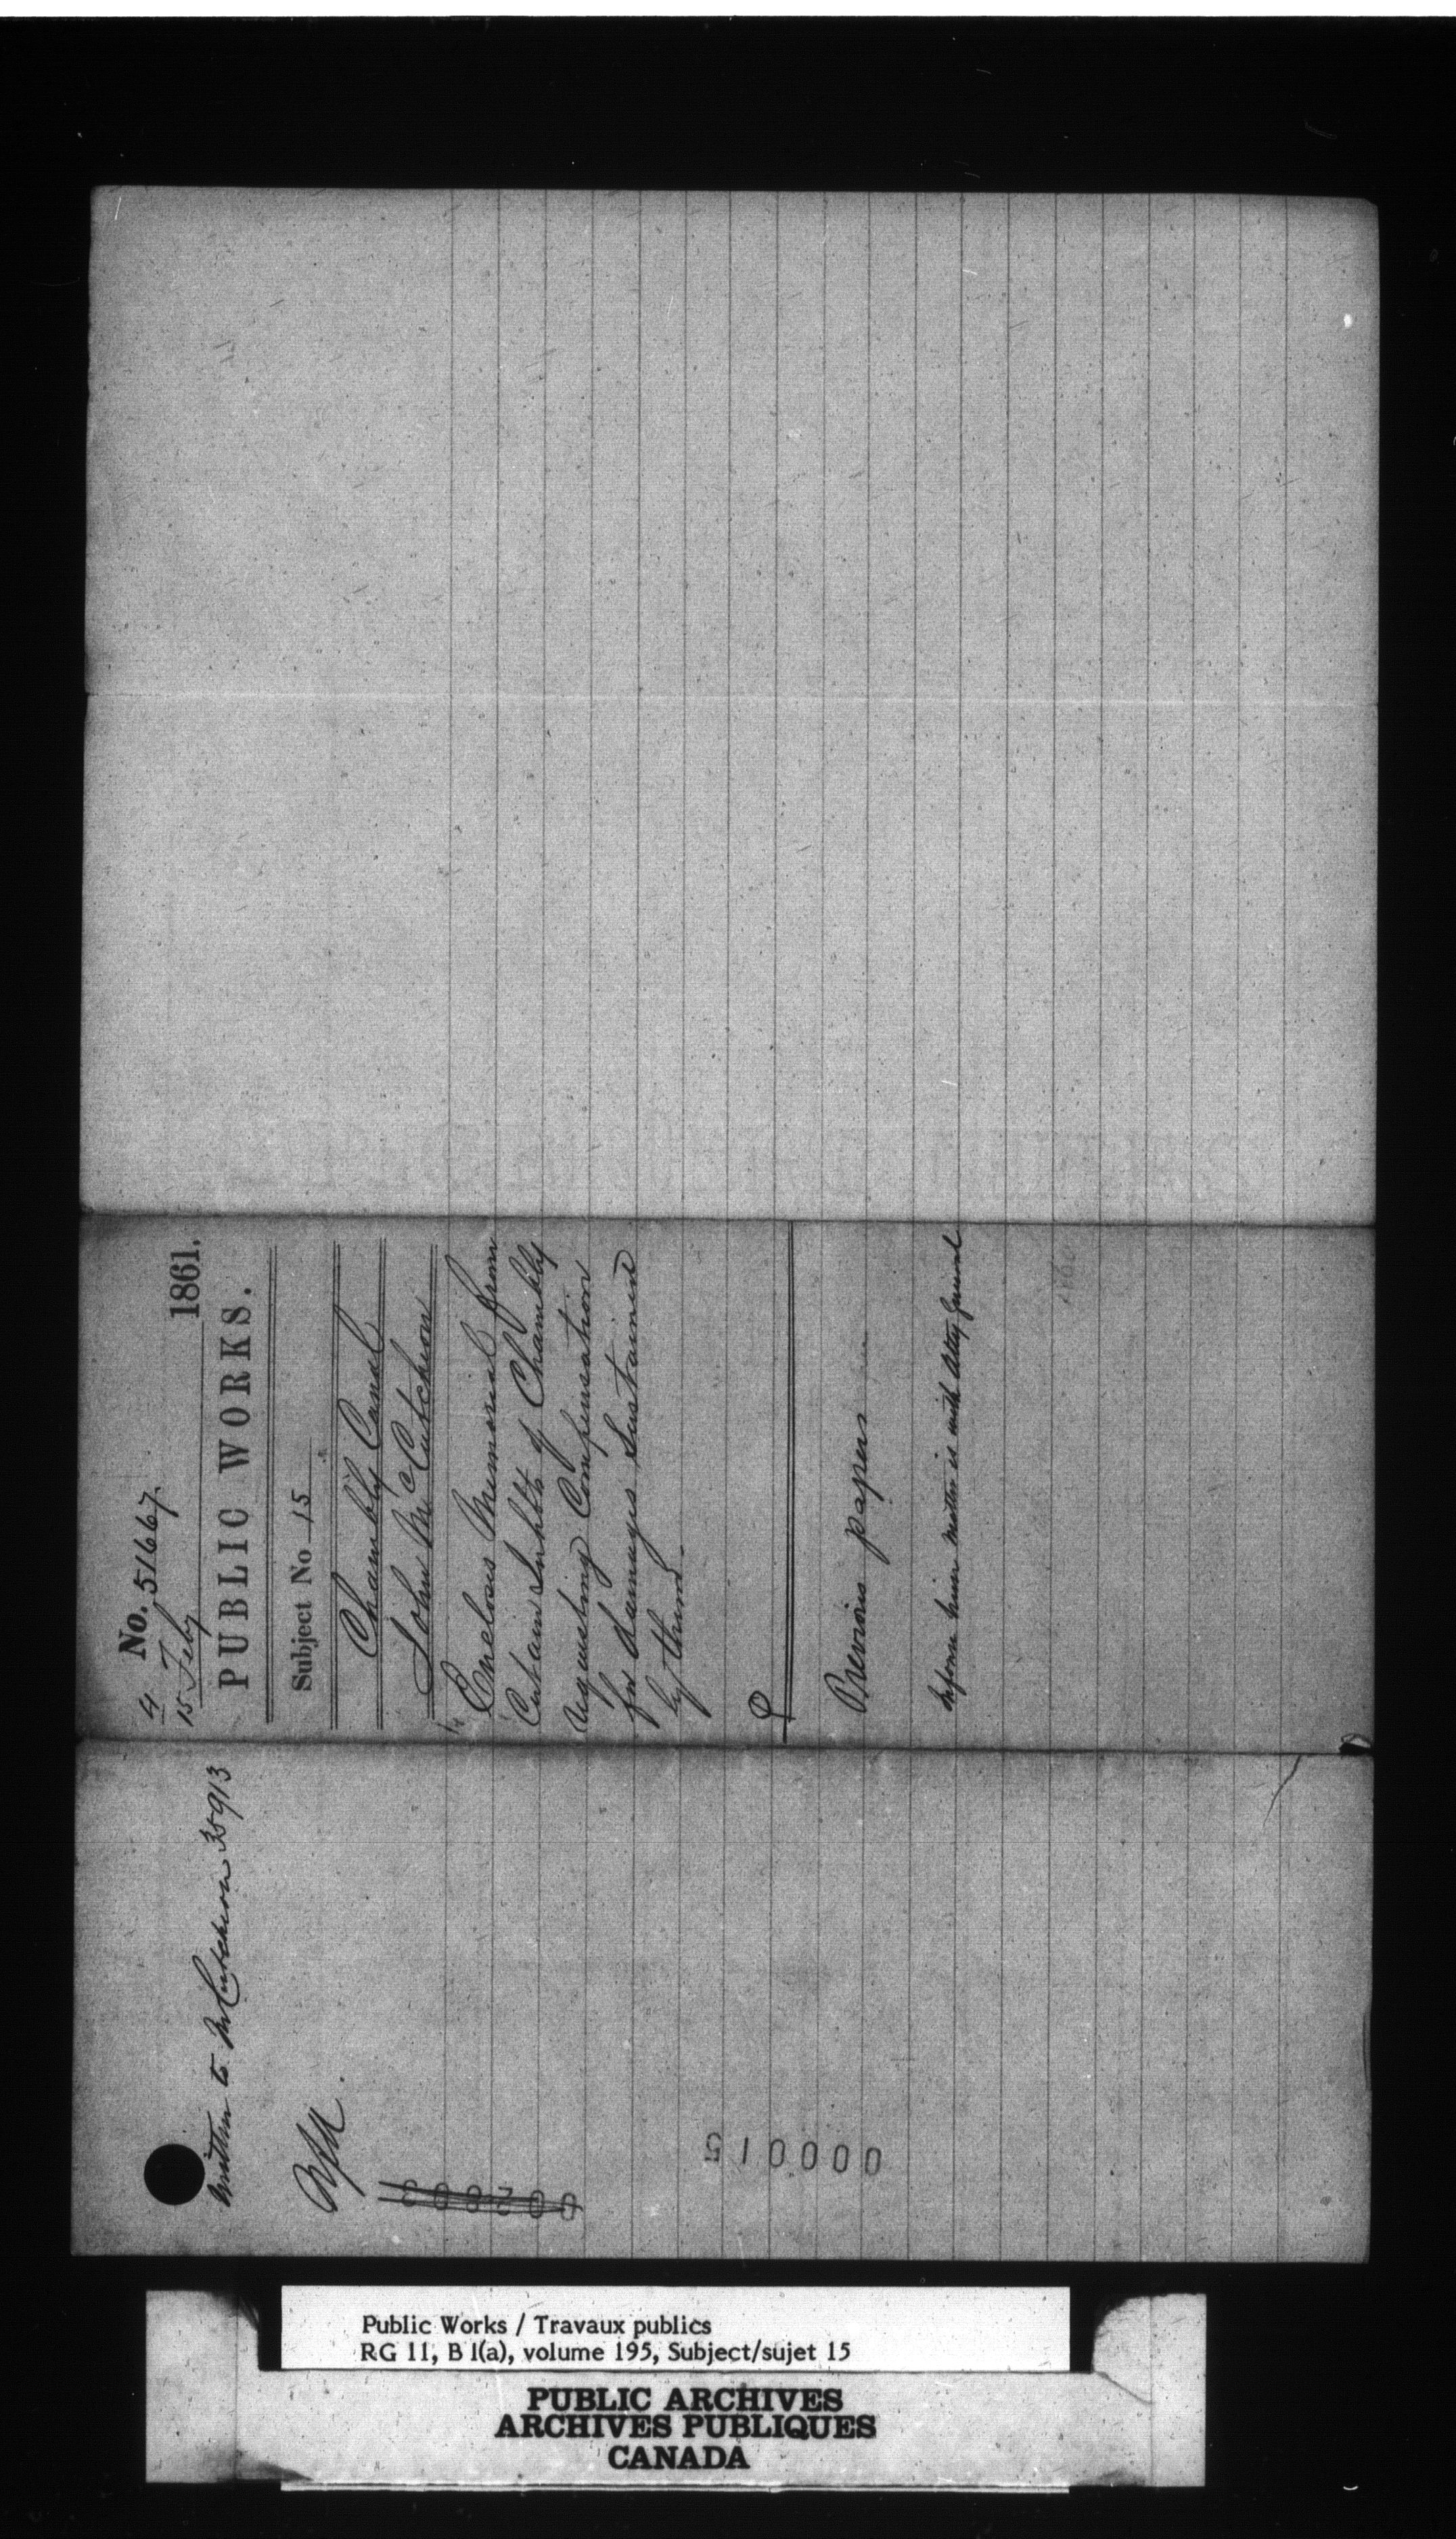 4 No. 51667.
15 Feby 1861.
PUBLIC WORKS.
Subject No 15
Chambly Canal
John McCutcheon
Encloses Memorial from
Certain Inhbts of Chambly
requesting Compensation
for damages sustained
by them.
Previous papers
Inform him matter is with Atty General
Written to McCutcheon 35913
000015
Public Works / Travaux publics
RG 11, B 1(a), volume 195, Subject/sujet 15
PUBLIC ARCHIVES
ARCHIVES PUBLIQUES
CANADA